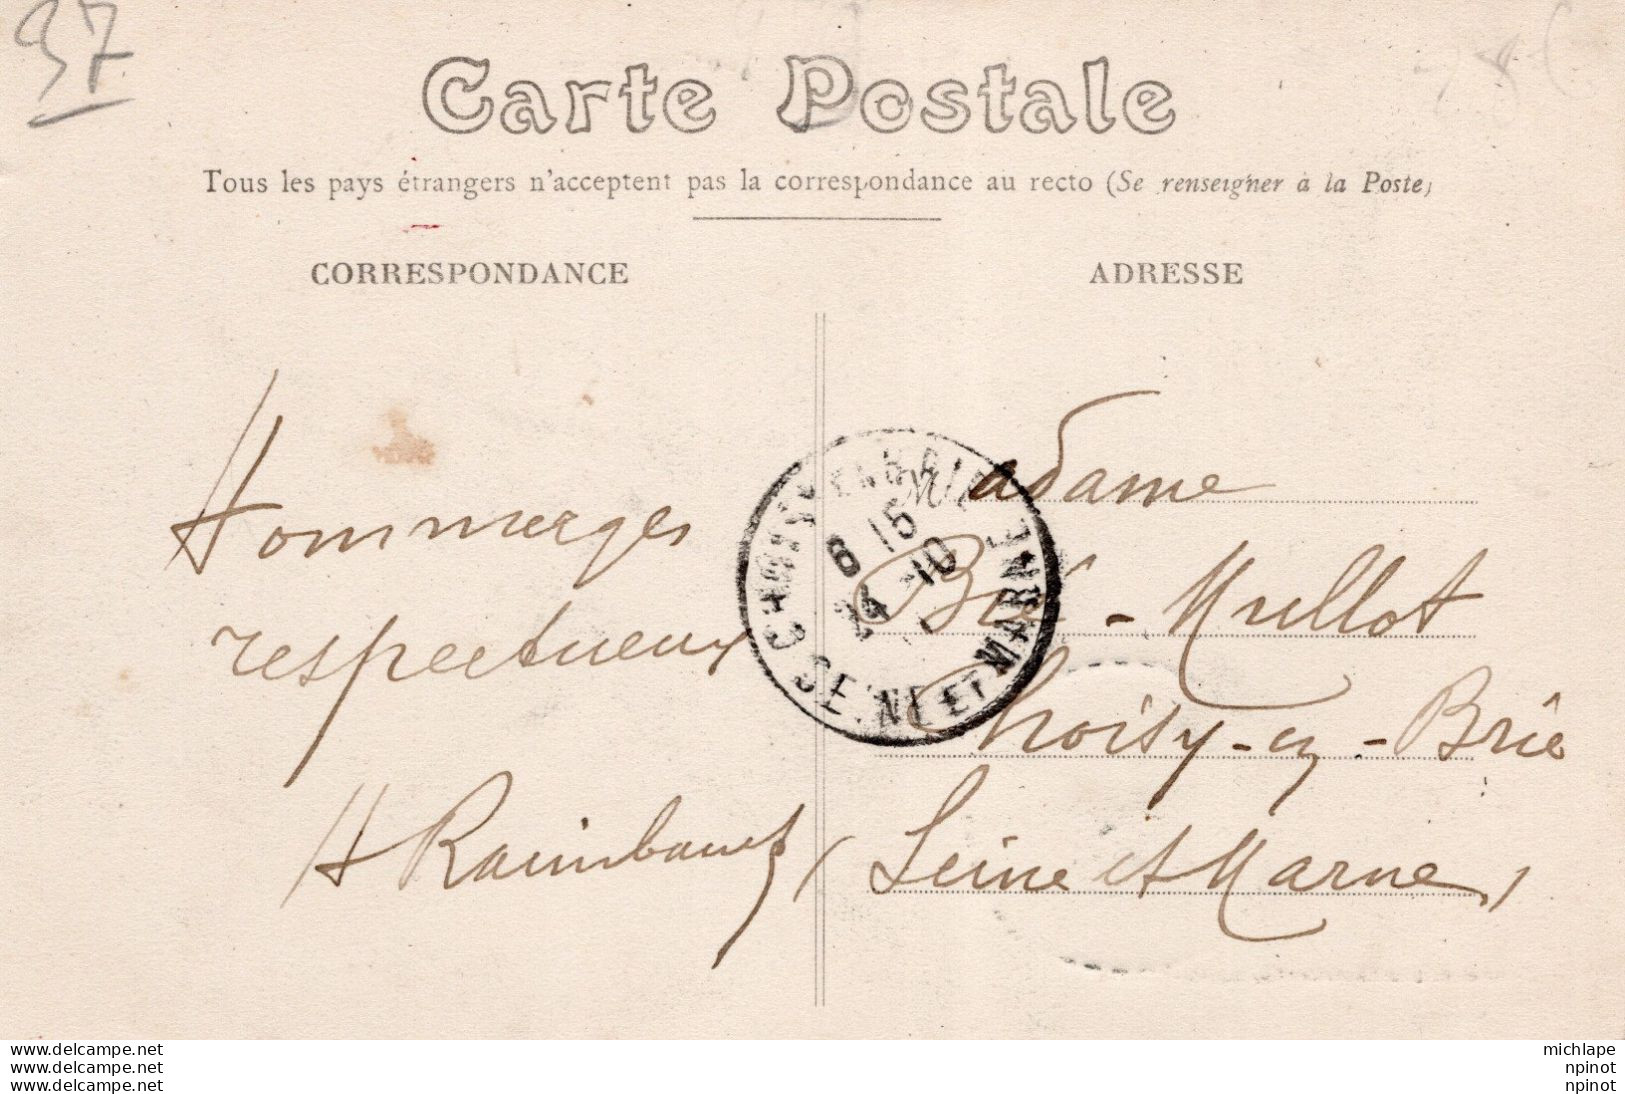 37
Carte Postale
Tous les pays étrangers n'acceptent pas la correspondance au recto (Se renseigner à la Poste)
CORRESPONDANCE
ADRESSE
Hommages
respectueux
H Raimbault
CHOISY EN BRIE
6 15
24 -10
SEINE ET MARNE
Madame
- Mullot
Choisy-en-Brie
(Seine et Marne)
www.delcampe.net
www.delcampe.net
www.delcampe.net
michlape
npinot
npinot